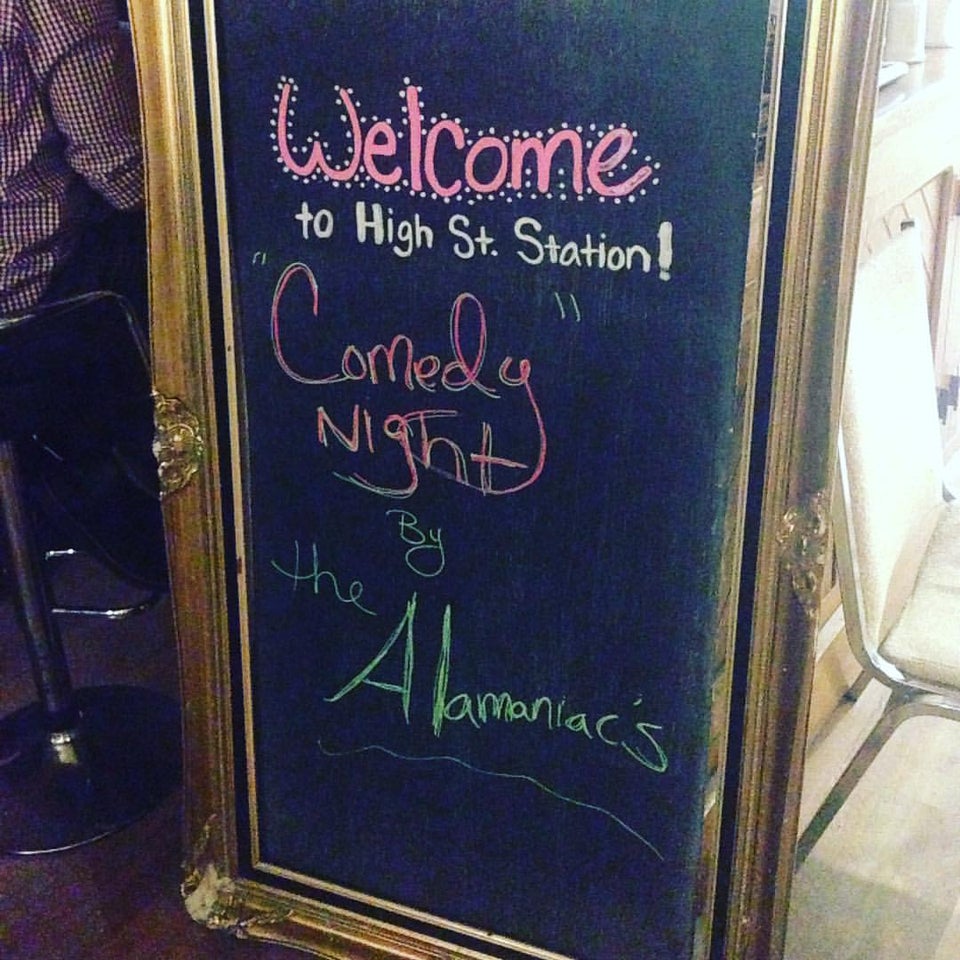 Welcome
to High St. Station!
"Comedy"
Night
By
the
Alamaniac's